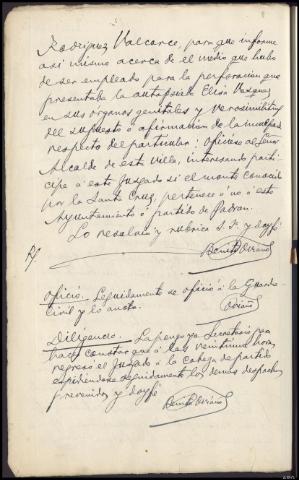 Rodriguez Valcarce, para que informe
asi mismo acerca de el medio que hubo
de ser empleado para la perforación que
presentaba la autopsiada Elisa Vazquez
en sus órganos genitales y verosimilitud
del supuesto ó afirmacion de la
respecto del particular: oficiese al Señor
Alcalde de esta villa, interesando parti-
cipe á este Juzgado si el monte conocido
por la Santa Cruz, pertenece ó no á este
Ayuntamiento ó partido de Padron.
Lo resolvió y rubrica S. Sª y doy fé
Benito Oviaño
Oficio. Seguidamente se ofició á la Guardia
civil y lo anoto.
Oviaño
Diligencia. La pongo yo Secretario para
hacer constar que á las veintiuna horas,
regresó el Juzgado á la cabeza de partido
expidiendose seguidamente los demas despachos
prevenidos y doy fé
Benito Oviaño